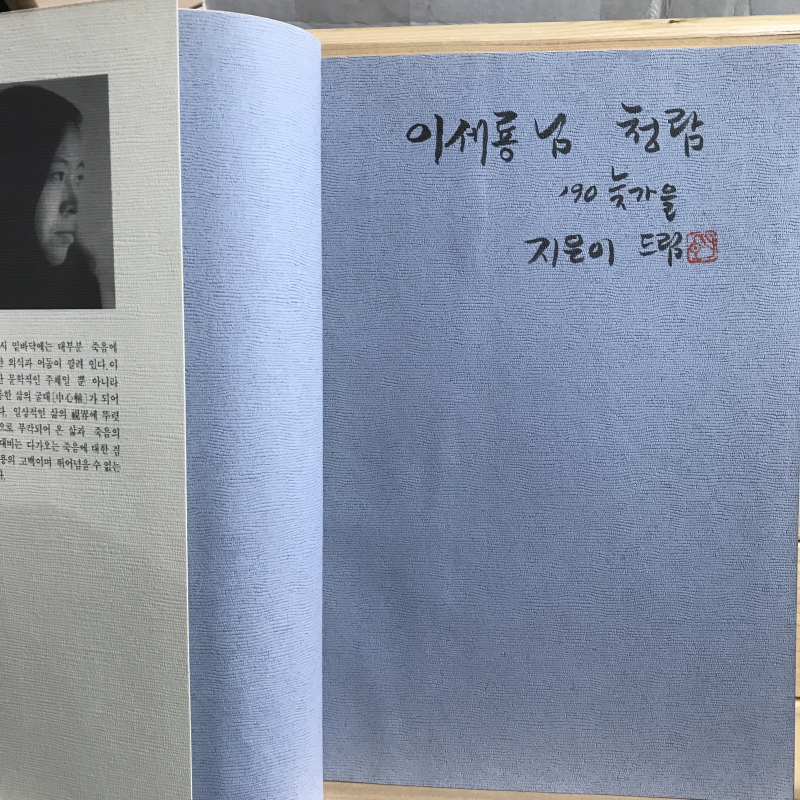 시 밑바닥에는 대부분 죽음에
의식과 어둠이 깔려 있다. 이
문학적인 주제일 뿐 아니라
삶의 굴대[中心軸]가 되어
일상적인 삶의 視界에 뚜렷
으로 부각되어 온 삶과 죽음의
대비는 다가오는 죽음에 대한 겸
고백이며 뛰어넘을 수 없는
이세룡 님 청람
'90 늦가을
지은이 드림